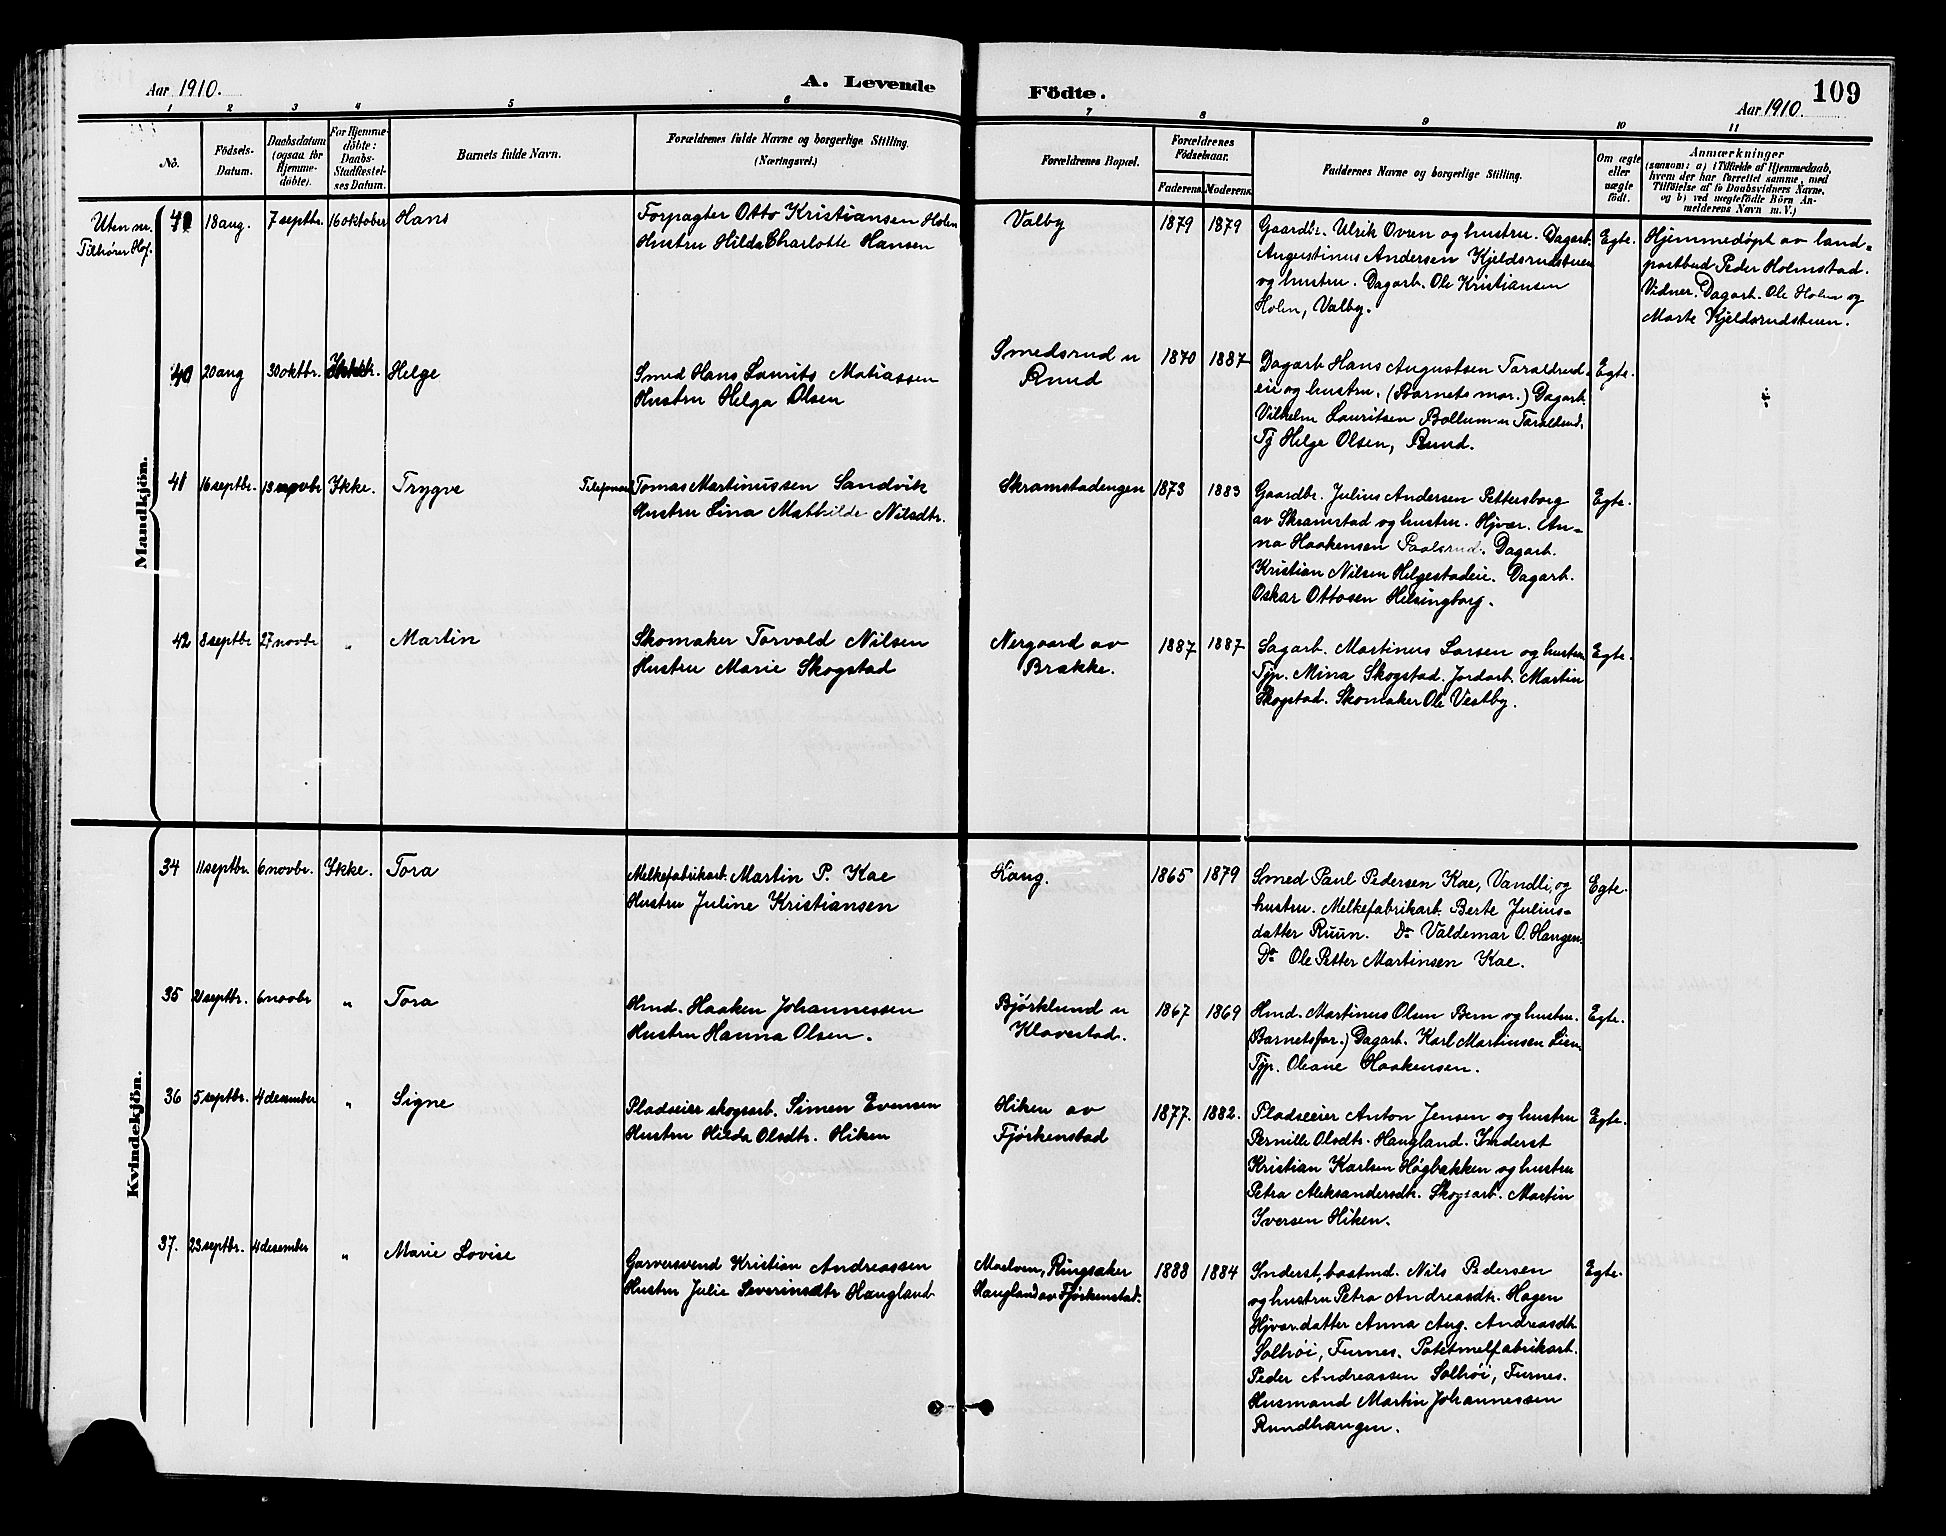 Aar 1910. A. Levende Fødte. 109
Aar 1910.
1 2 3 4 5 6 7 8 9 10 11
No.
Fødsels-
Datum.
Daabsdatum
(ogsaa for
Hjemme-
døbte).
For Hjemme-
døbte:
Daabs-
Stadfæstel-
ses Datum.
Barnets fulde Navn.
Forældrenes fulde Navne og borgerlige Stilling.
(Næringsvei.)
Forældrenes Bopæl.
Forældrenes
Fødselsaar.
Faderens. Moderens.
Faddernes Navne og borgerlige Stilling.
Om ægte
eller
uægte
født.
Anmærkninger
(saasom: a) i Tilfælde af Hjemmedaab,
hvem der har forrettet samme, med
Tilføielse af to Daabsvidners Navne,
og b) ved uægtefødte Børn An-
melderens Navn m. V.)
Mandkjön.
Uten nr.
Tilhører Hof.
18 aug. 7 septbr. 16 oktober Hans
Forpagter Otto Kristiansen Holm
Hustru Hilda Charlotte Hansen
Valby
1879 1879
Gaardbr. Ulrik Ovren og hustru. Dagarb.
Augustinus Andersen Kjeldsrudstuen
og hustru. Dagarb. Ole Kristiansen
Holm, Valby.
Egte.
Hjemmedøpt av land-
postbud Peder Holmstad.
Vidner. Dagarb. Ole Holm og
Marte Kjeldsrudstuen.
40 20 aug 30 oktbr. Ikke. Helge
Smed Hans Laurits Matiassen
Hustru Helga Olsen
Smedsrud u
Rund
1870 1887
Dagarb. Hans Augustsen Taraldrud-
eie og hustru. (Barnets mor.) Dagarb.
Vilhelm Lauritsen Bollum u Taraldrud.
Tj Helge Olsen, Rund.
Egte.
41 16 septbr. 13 novbr Ikke. Trygve
Tomas Martinussen Sandvik
Hustru Lina Mathilde Nilsdtr.
Skramstadengen
1873 1883
Gaardbr. Julius Andersen Pettersborg
av Skramstad og hustru. Hjvær. An-
na Haakensen Paalsrud. Dagarb.
Kristian Nilsen Helgestadeie. Dagarb.
Oskar Ottosen Helsingborg.
Egte.
42 8 septbr 27 novbr " Martin
Skomaker Torvald Nilsen
Hustru Marie Skogstad
Nergaard av
Brække.
1887 1887
Sagarb. Martinus Larsen og hustru
Tjp. Mina Skogstad. Jordarb. Martin
Skogstad. Skomaker Ole Vestby.
Egte.
Kvindekjön.
34 11 septbr. 6 novbr. Ikke. Tora
Melkefabrikarb. Martin P. Kae
Hustru Juline Kristiansen
Kaug.
1865 1879
Smed Paul Pedersen Kae, Vandli, og
hustru. Melkefabrikarb. Berte Julius-
datter Ruun. Do Valdemar O. Haugen.
Do Ole Petter Martinsen Kae.
Egte.
35 21 septbr. 6 novbr " Tora
Hmd. Haaken Johannessen
Hustru Hanna Olsen.
Bjørklund u
Klovestad.
1867 1869
Hmd. Martinus Olsen Bern og hustru.
Barnetsfar.) Dagarb. Karl Martinsen Lien.
Tjp. Oleane Haakensen.
Egte.
36 5 septbr. 4 desember " Signe
Pladseier skogsarb. Simen Evensen
Hustru Hilda Olsdtr. Hiken
Hiken av
Fjørkenstad
1877. 1882.
Pladseeier Anton Jensen og hustru
Pernille Olsdtr. Haugland. Inderst
Kristian Karlsen Høgbakken og hustru
Petra Aleksandersdtr. Skogsarb. Martin
Iversen Hiken.
Egte.
37. 23 septbr. 4 desember " Marie Lovise
Garversvend Kristian Andreassen
Hustru Julie Severinsdtr Haugland
Moelven, Ringsaker
Haugland av Fjørkenstad.
1888 1884
Inderst, bastmd. Nils Pedersen
og hustru Petra Andreasdtr. Hagen
Hjvær. datter Anna Aug. Andreasdtr.
Solhøi, Furnes. Potetmelfabrikarb.
Peder Andreassen Solhøi, Furnes.
Husmand Martin Johannessen
Rundhaugen.
Egte.